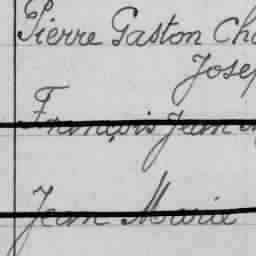 Pierre Gaston Cha
Josep
François Jean
Jean Marie